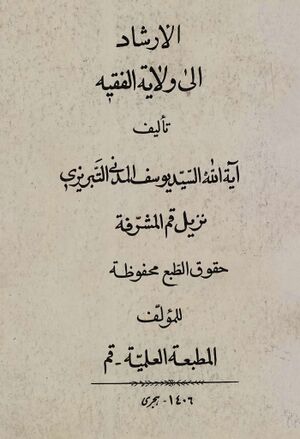 الارشاد
الى ولاية الفقيه
تأليف
آية الله السيد يوسف المدنى التبريزى
نزيل قم المشرفة
حقوق الطبع محفوظة
للمؤلف
المطبعة العلمية - قم
١٤٠٦ - هجرى